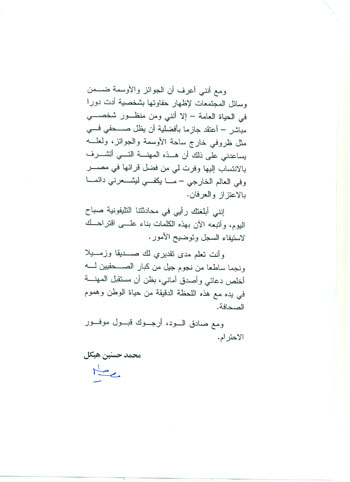 ومع أنني أعرف أن الجوائز والأوسمة ضمن
وسائل المجتمعات لإظهار حفاوتها بشخصية أدت دورا
في الحياة العامة – إلا أنني ومن منظور شخصي
مباشر – أعتقد جازما بأفضلية أن يظل صحفي في
مثل ظروفي خارج ساحة الأوسمة والجوائز، ولعله
يساعدني على ذلك أن هذه المهنة التي أتشرف
بالانتساب إليها وفرت لي من فضل قرائها في مصر
وفي العالم الخارجي – ما يكفي ليشعرني دائما
بالاعتزاز والعرفان.
إنني أبلغتك رأيي في محادثتنا التليفونية صباح
اليوم، وأتبعه الآن بهذه الكلمات بناء على اقتراحك
لاستيفاء السجل وتوضيح الأمور.
وأنت تعلم مدى تقديري لك صديقا وزميلا
ونجما ساطعا من نجوم جيل من كبار الصحفيين له
أخلص دعائي وأصدق أماني، بظن أن مستقبل المهنة
في يده مع هذه اللحظة الدقيقة من حياة الوطن وهموم
الصحافة.
ومع صادق الود، أرجوك قبول موفور
الاحترام.
محمد حسنين هيكل